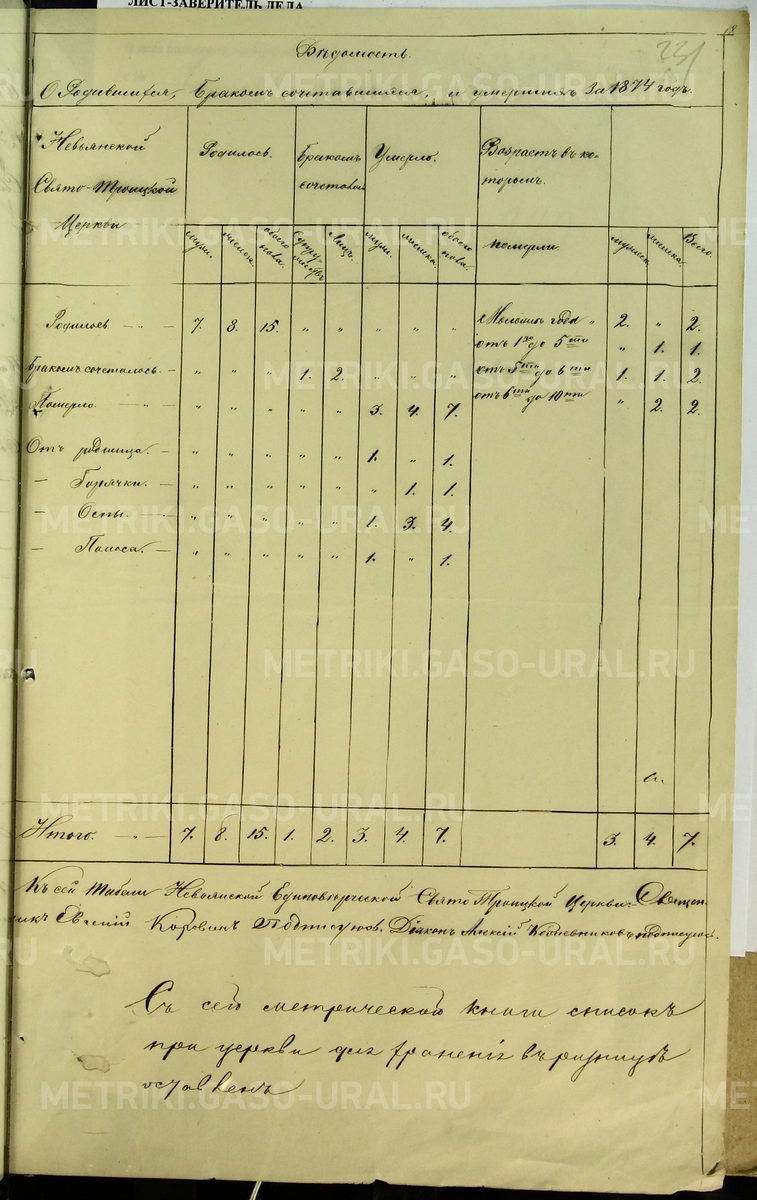 ЛИСТ-ЗАВЕРИТЕЛЬ ДЕЛА
231
Вѣдомость.
О Родившихся, Бракомъ сочетавшихся, и умершихъ За 1874 годъ.
Невьянской Свято-Троицкой Церкви | Родилось. | Бракомъ сочетавш | Умерло. | Возрастъ въ которомъ
мужи. | обоего пола. | Супружествъ | Лицъ. | мужи. | женска. | обоего пола. | померли | мужеск. | женска. | Всего.
Родилось — „ — | 7. | 8. | 15. | „ | „ | „ | „ | „ | Моложе года „ | 2. | „ | 2.
отъ 1го до 5ти | „ | 1. | 1.
Бракомъ сочеталось. — | „ | „ | „ | 1. | 2. | „ | „ | „ | отъ 5ти до 6ти | 1. | 1. | 2.
Померло. — „ — | „ | „ | „ | „ | „ | 3. | 4. | 7. | отъ 6ти до 10ти | „ | 2. | 2.
Отъ родимца. — | „ | „ | „ | „ | „ | 1. | „ | 1.
— Горячки. — | „ | „ | „ | „ | „ | „ | 1. | 1.
— Оспы. — | „ | „ | „ | „ | „ | 1. | 3. | 4.
— Поноса. — | „ | „ | „ | „ | „ | 1. | „ | 1.
Итого. — „ — | 7. | 8. | 15. | 1. | 2. | 3. | 4. | 7. | 3. | 4. | 7.
Къ сей Табели Невьянской Единовѣрческой Свято Троицкой Церкви: Священ
никъ Евгеній Коровинъ Подписуюсь. Діаконъ Алексій Кожевниковъ подписуюсь.
Съ сей метрической книги списокъ
при церкви для храненія въ ризницѣ
оставленъ
METRIKI.GASO-URAL.RU